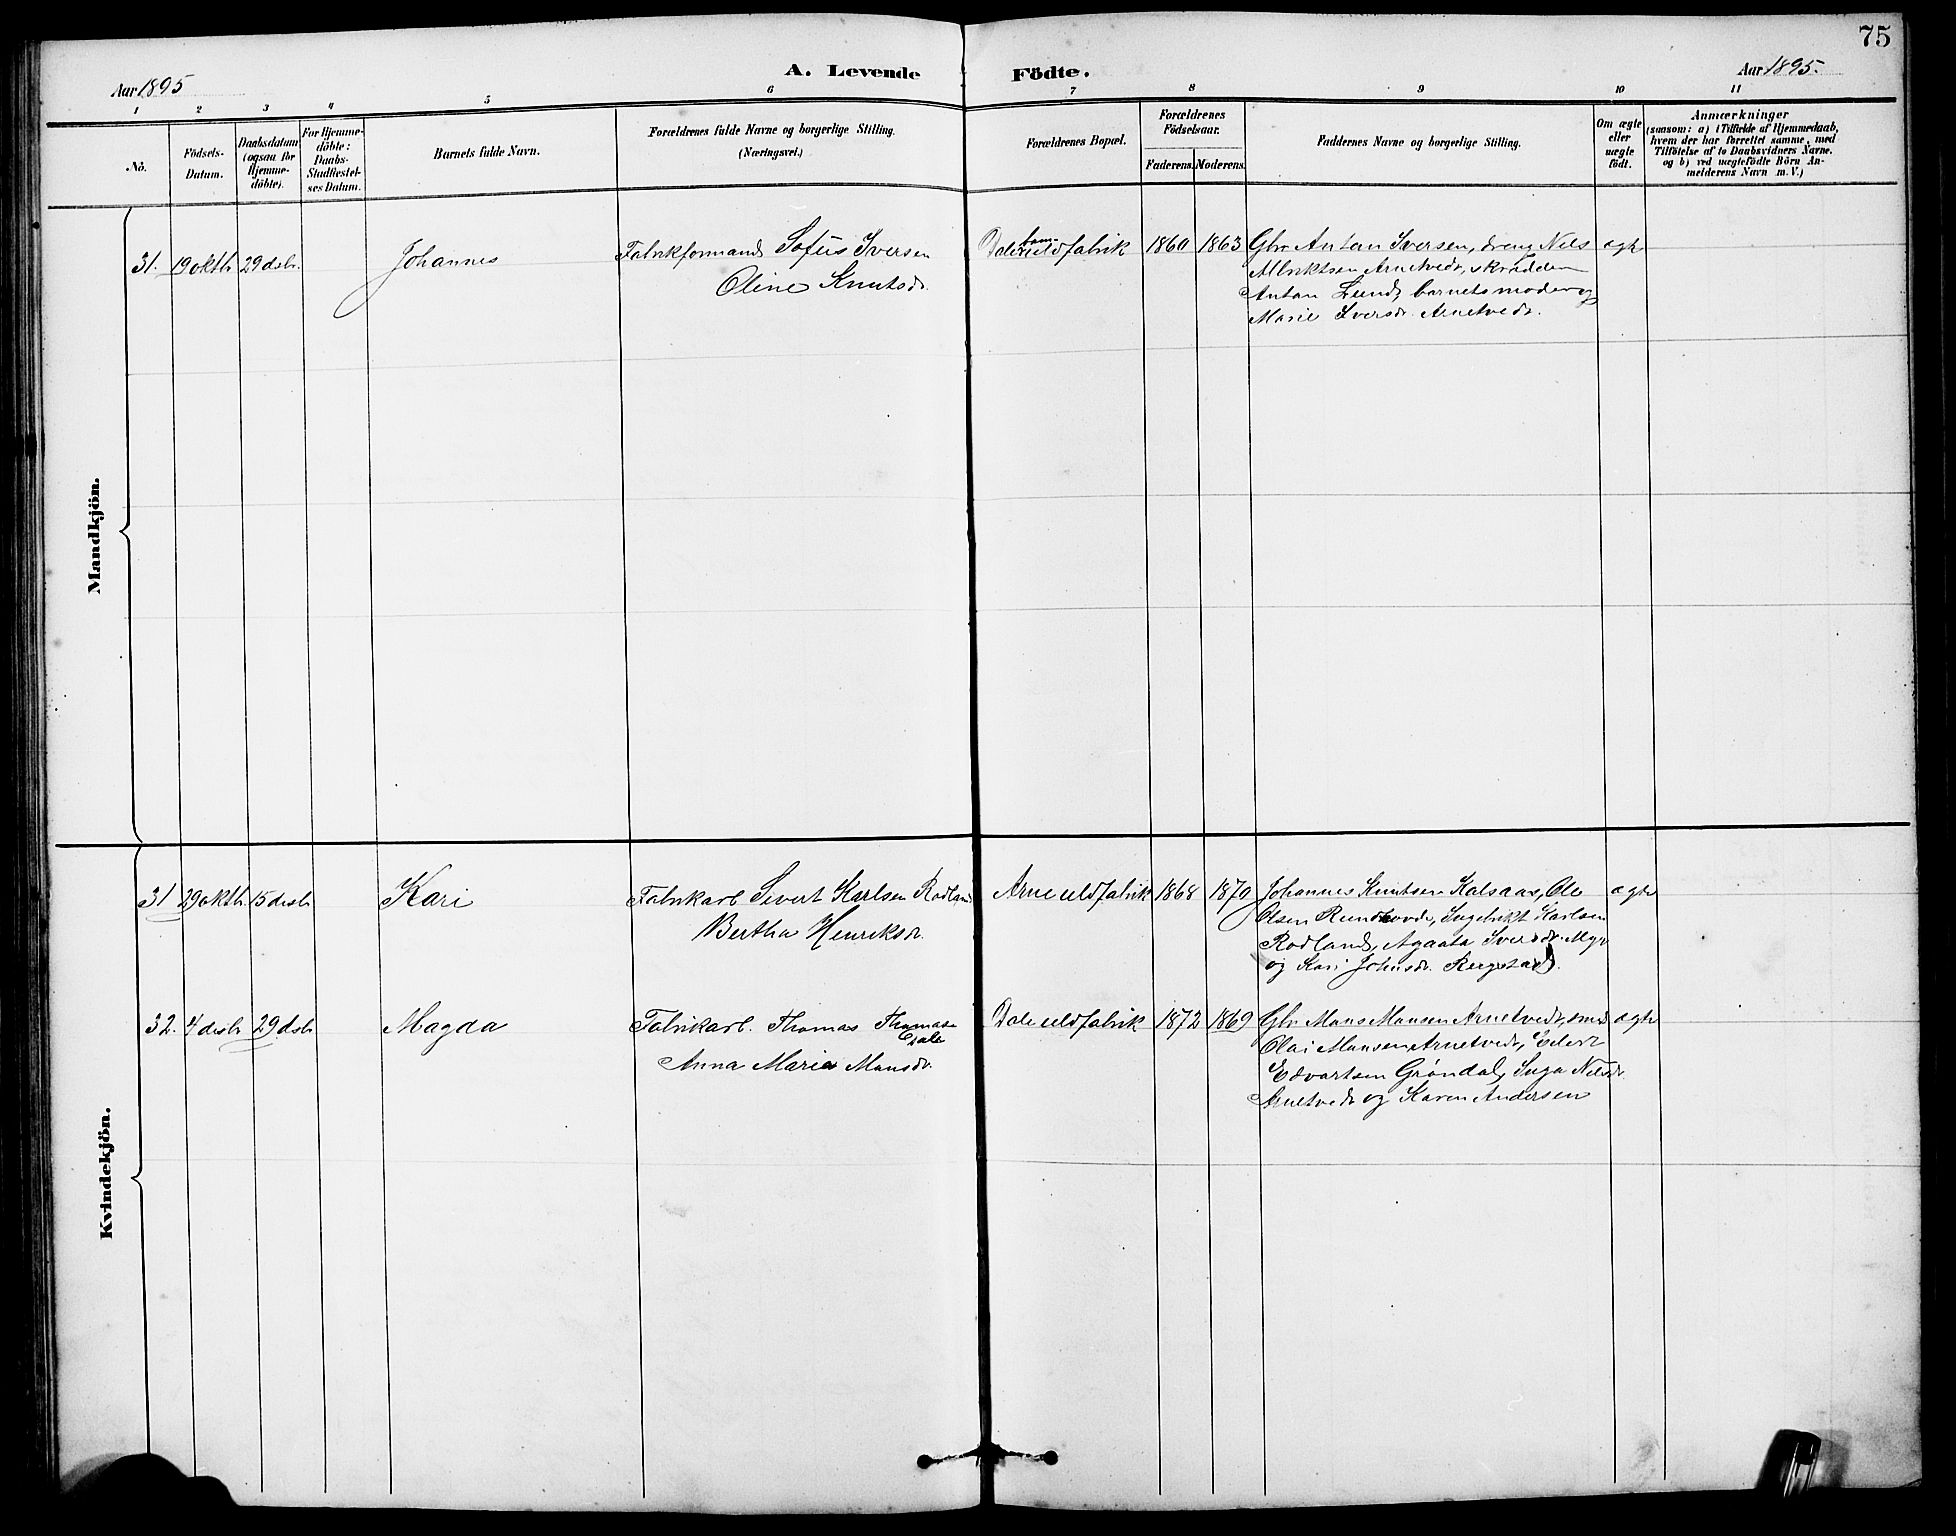 75
Aar 1895
A. Levende Födte.
Aar 1895.
1 2 3 4 5 6 7 8 9 10 11
No.
Födsels-
Datum.
Daabsdatum
(ogsaa för
Hjemme-
döbte).
For Hjemme-
döbte:
Daabs-
Stadfæstel-
ses Datum.
Barnets fulde Navn.
Forældrenes fulde Navne og borgerlige Stilling.
(Næringsvei.)
Forældrenes Bopæl.
Forældrenes
Födselsaar.
Faderens. Moderens.
Faddernes Navne og borgerlige Stilling.
Om ægte
eller
uægte
födt.
Anmærkninger
(saasom: a) i Tilfælde af Hjemmedaab,
hvem der har forrettet samme, med
Tilföielse af to Daabsvidners Navne.
og b) ved uægtefödte Börn An-
melderens Navn m. V.)
Mandkjön.
31. 19 oktb. 29 desb. Johannes Fabrikformand Sofus Iversen
Oline Knutsdr.
Dale uldfabrik 1860 1863 Gbr Anton Iversen, dreng Nils
Albriktsen Arnetvedt, skrædder
Anton Lund, barnets moder og
Marie Iversdr. Arnetvedt.
ægte
Kvindekjön.
31 29 oktb. 15 desb. Kari Fabrikarb. Sivert Karlsen Rødland
Bertha Henriksdr.
Arne uldfabrik 1868 1870 Johannes Knutsen Kalsaas, Ole
Olsen Rundhovde, Ingebrikt Karlsen
Rødland, Agaata Iversdr. Myr
og Kari Johnsdr. Bergstad.
ægte
32. 4 desb. 29 desb. Magda Fabrikarb. Thomas Thomasen
Anna Maria Monsdr.
Dale uldfabrik 1872 1869 Gbr Mons Monsen Arnetvedt, smed
Olai Monsen Arnetvedt, Eilert
Edvartsen Grøndal, Inga Nilsdr.
Arnetvedt og Karen Andersen
ægte